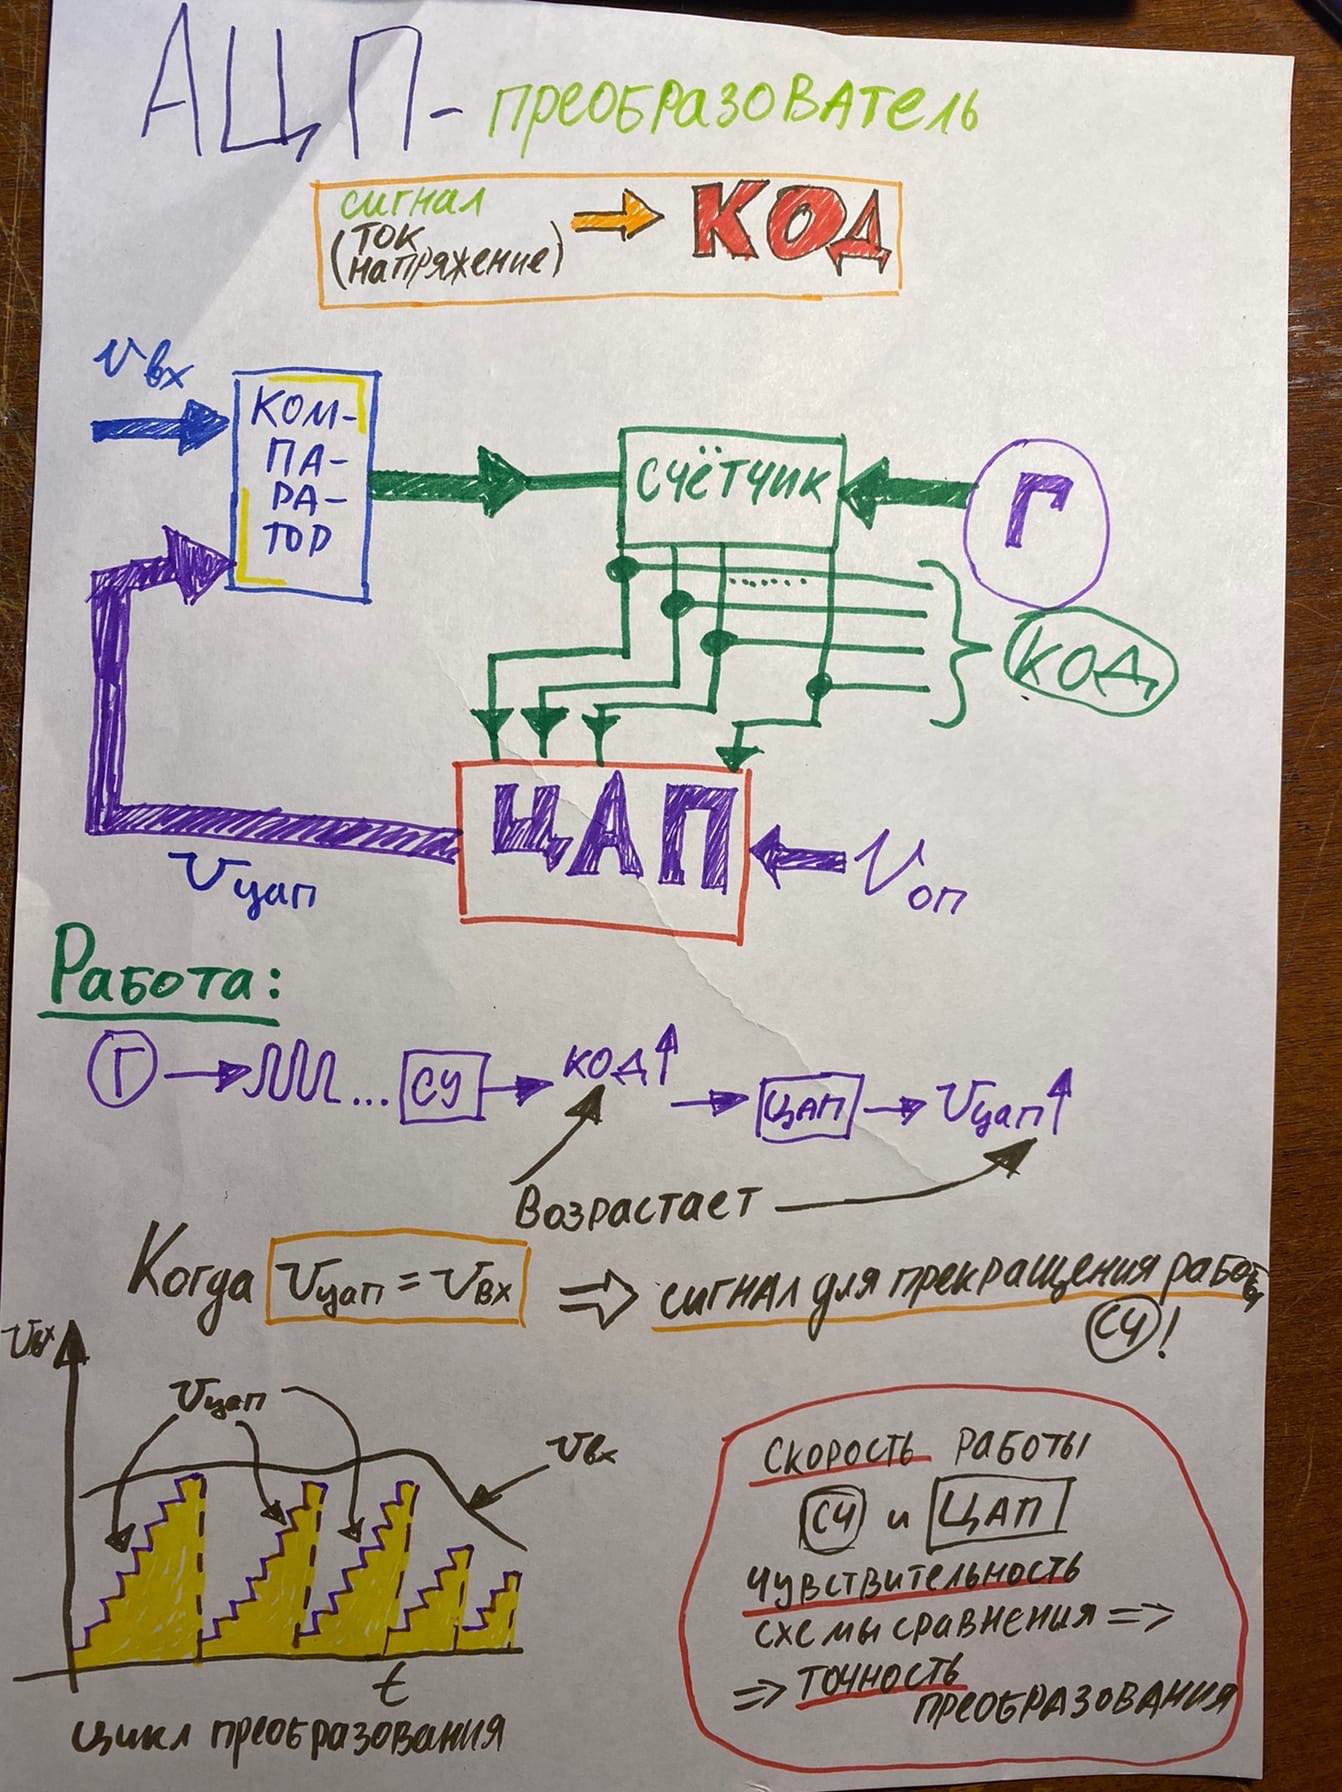 АЦП - преобразователь
сигнал
(ток
напряжение)
КОД
Uвх
КОМ-
ПА-
РА-
ТОР
СЧЁТЧИК
Г
КОД
ЦАП
Uоп
Uцап
Работа:
Г
...
СЧ
КОД
ЦАП
Uцап
Возрастает
Когда Uцап = Uвх ⇒ сигнал для прекращения работы
СЧ!
Uвх
Uцап
Uвх
t
цикл преобразования
Скорость работы
СЧ и ЦАП
Чувствительность
схемы сравнения ⇒
⇒ точность
преобразования